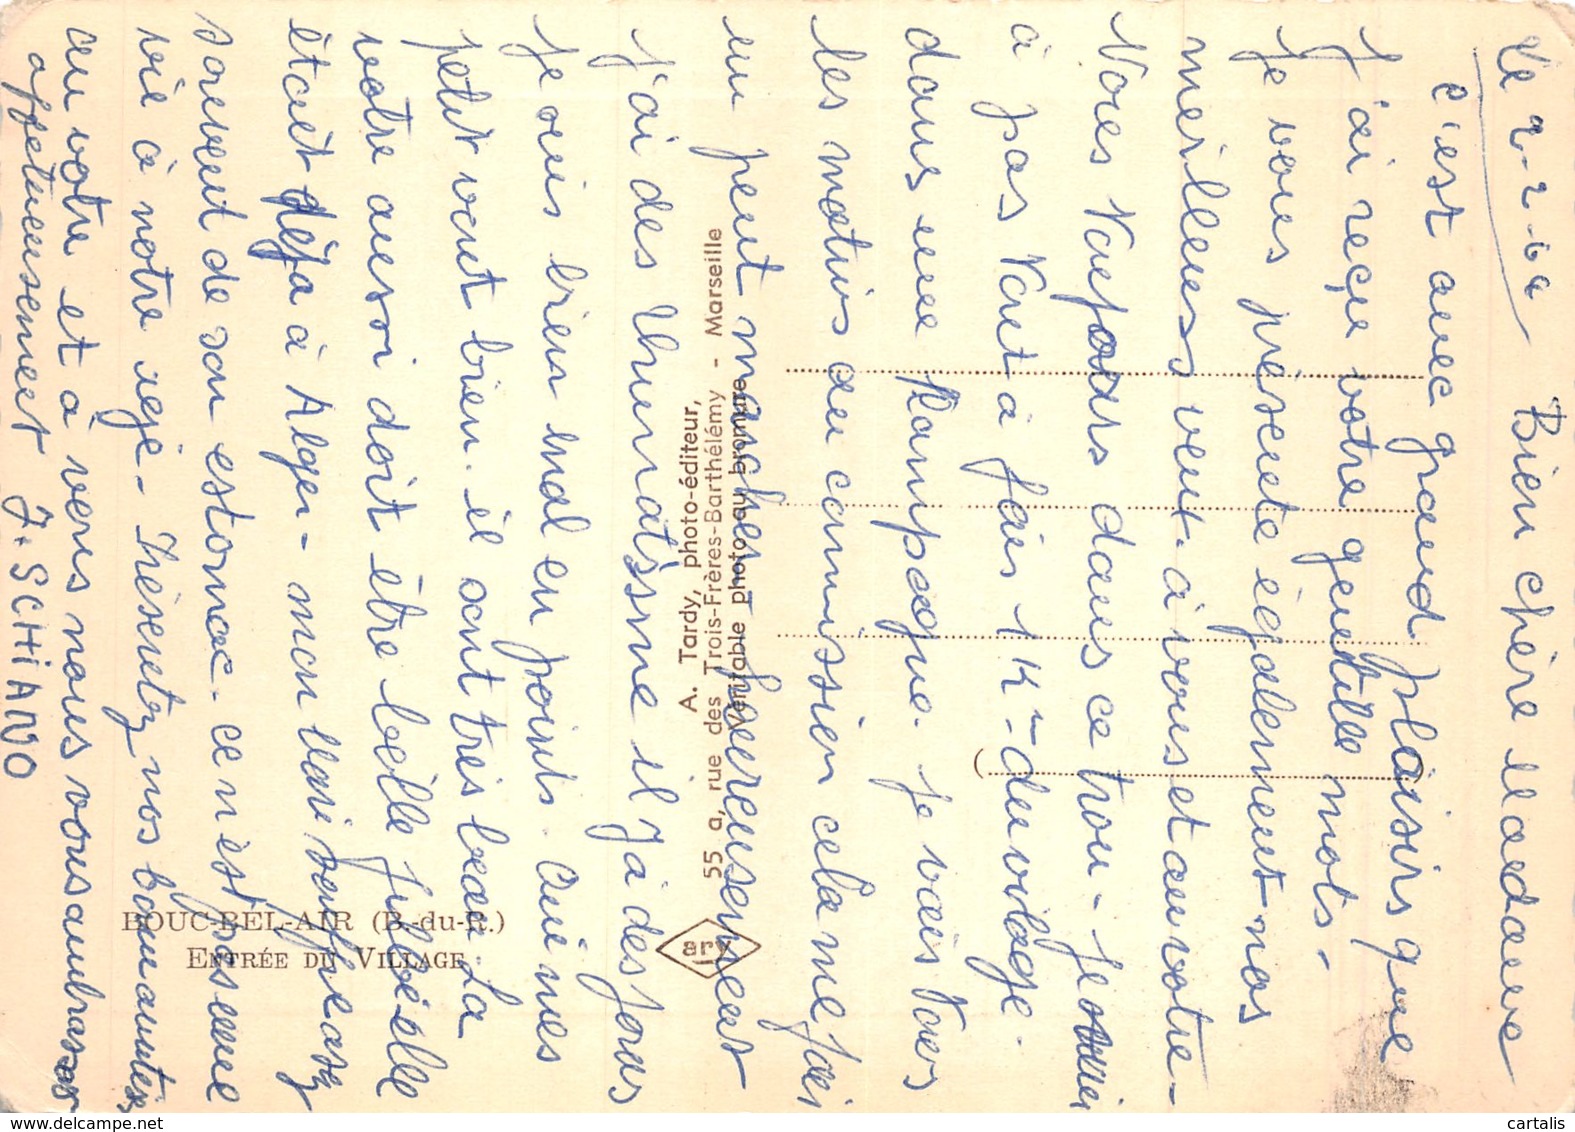 Le 2-2-62 Bien chère Madame
c'est avec grand plaisirs que
j'ai reçu votre gentille mots.
je vous présente également nos
meilleurs veut. à vous et au votre -
à pas Vont à fair 1 K - du village.
dans une Kampagne. je vais Vous
les matins au cammission cela me fai
un peut marcher heureusement
j'ai des Rhumatisme il y a des jours
je suis bien mal en points. Quimes
petit vont bien. il sont très beau. La
votre aussi doit être belle fille elle
était déja à Alger - mon Mari
souvent de son estomac. ce n'est pas une
vie à notre age - Présentez nos
au votre et à vous nous vous ambrassons
affetueusement J. SCHIANO
A. Tardy, photo-éditeur,
55 a, rue des Trois-Frères-Barthélémy - Marseille
Véritable photo au bromure
BOUC-BEL-AIR (B.-du-R.)
ENTRÉE DU VILLAGE
ary
cartalis